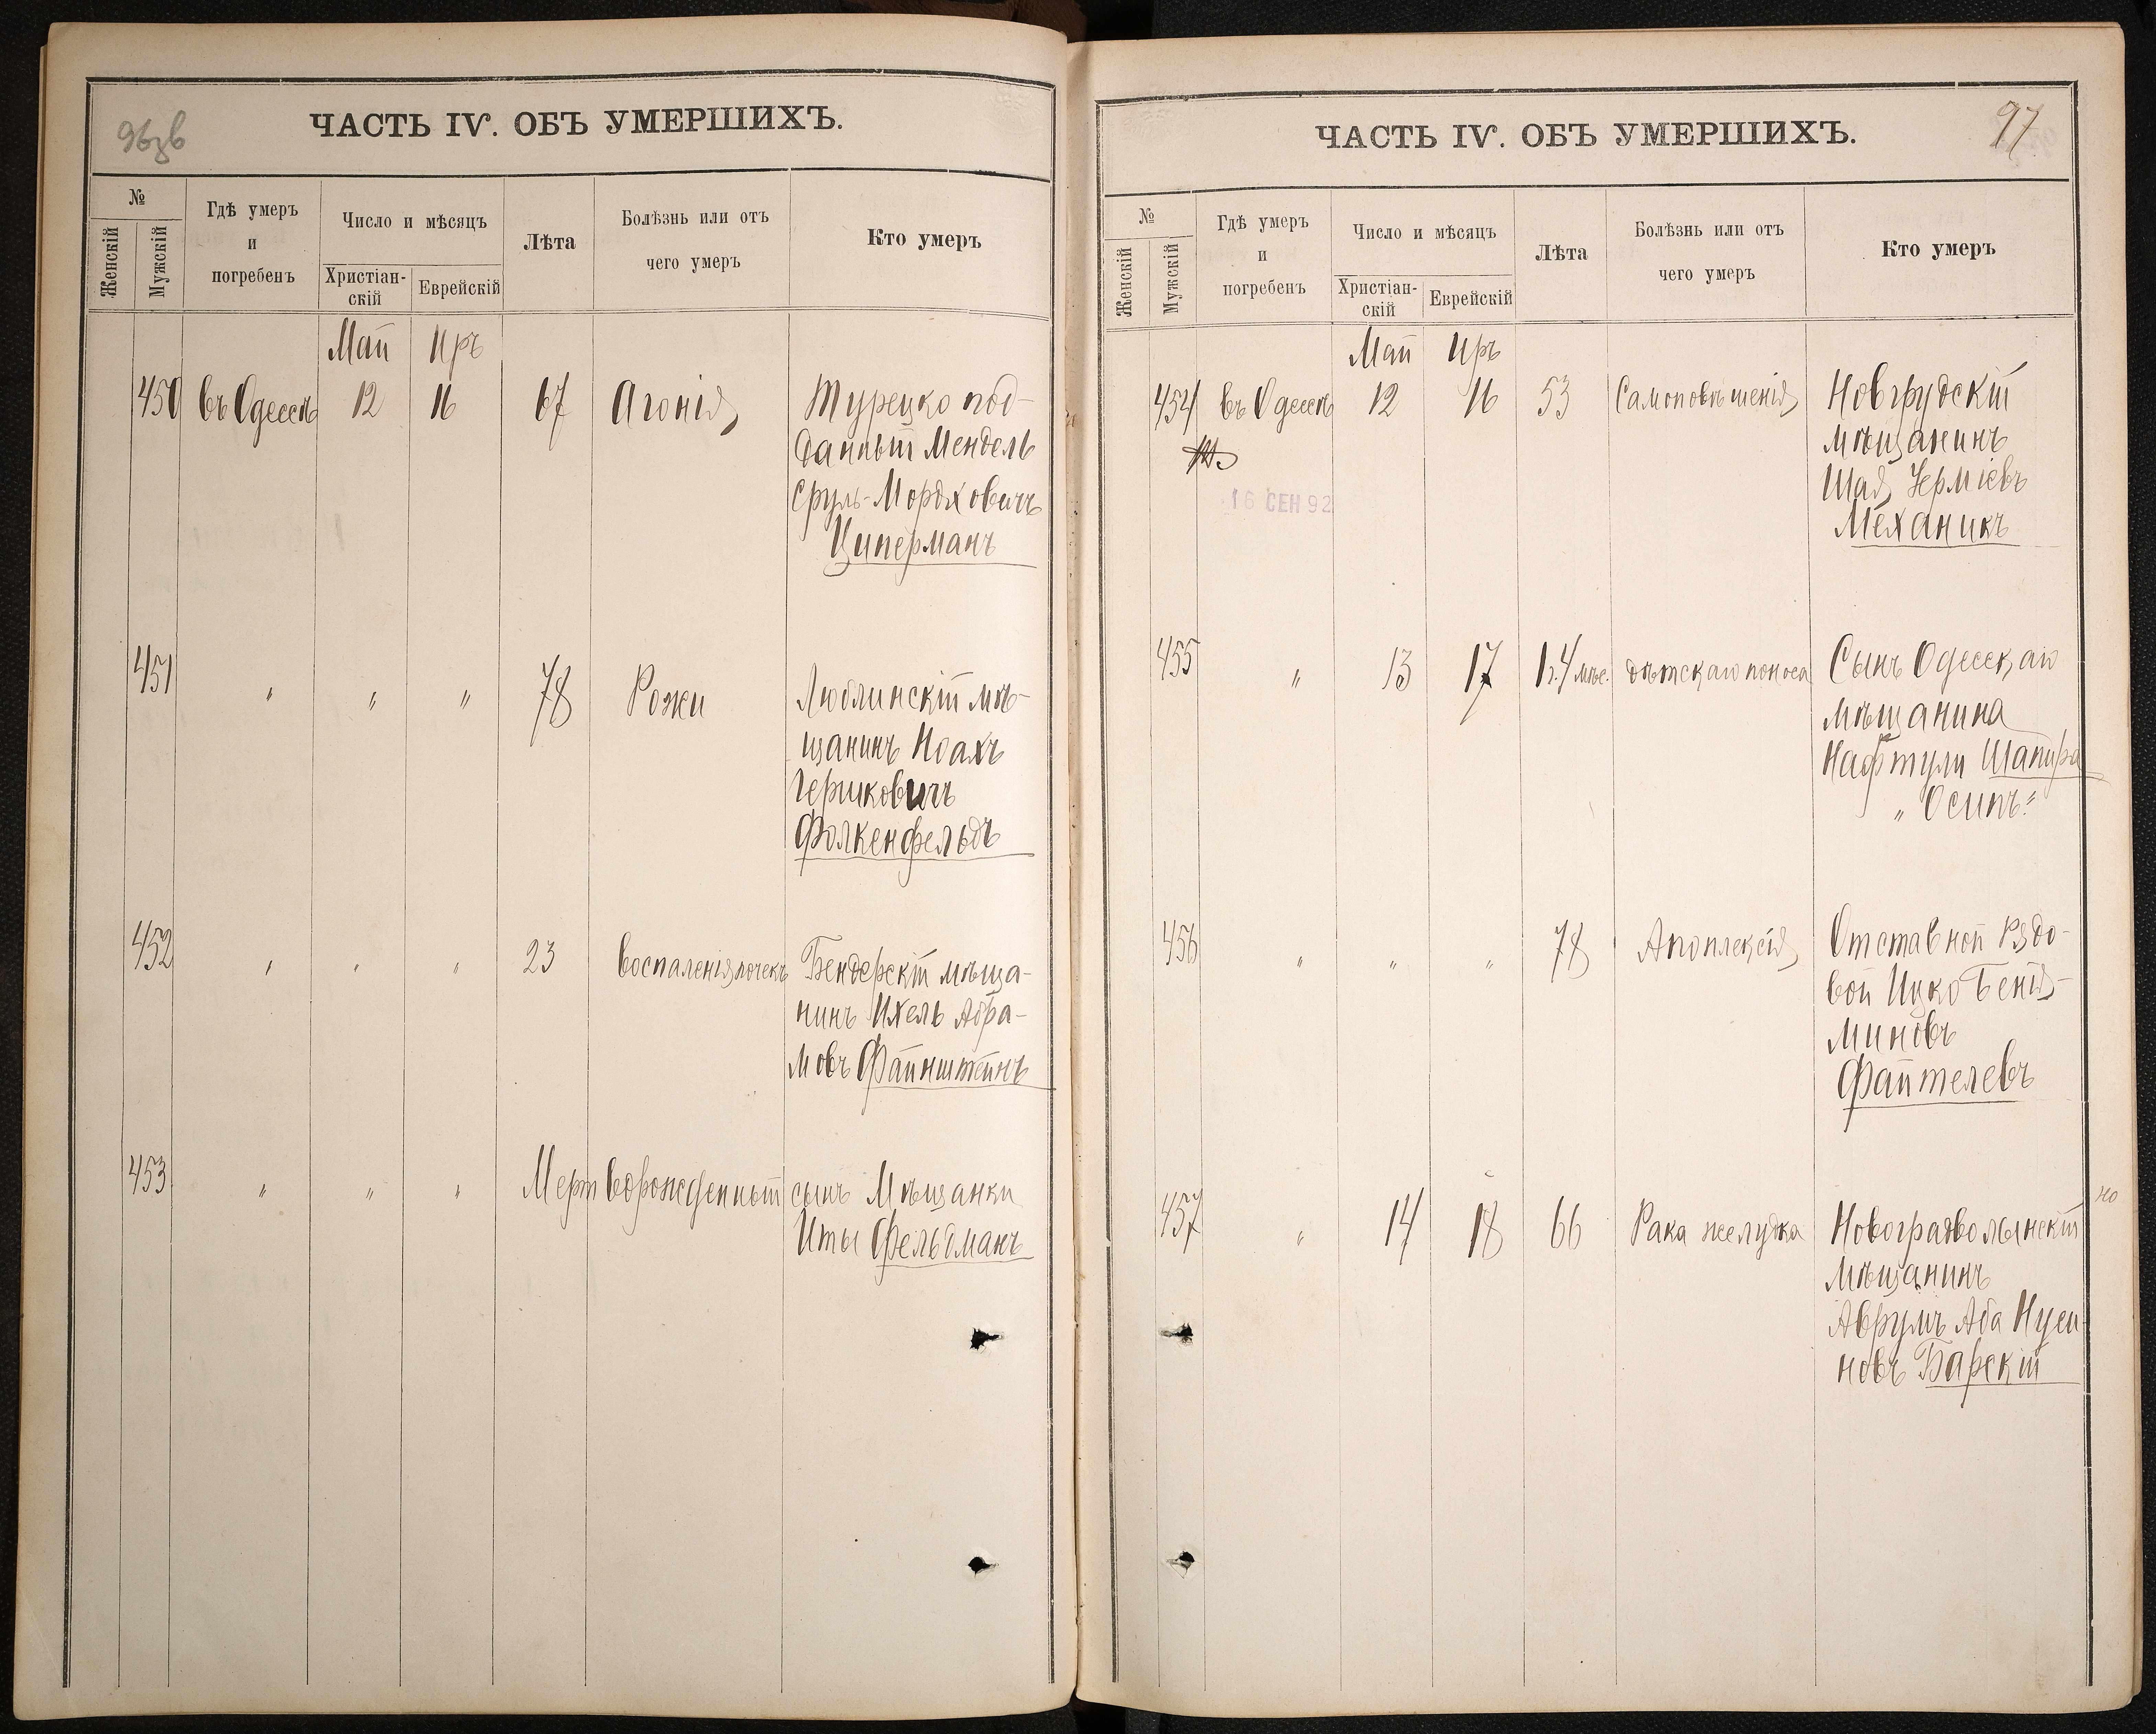 96зв
ЧАСТЬ IV. ОБЪ УМЕРШИХЪ.
№
Женскій
Мужскій
Гдѣ умеръ
и
погребенъ
Число и мѣсяцъ
Христіан-
скій
Еврейскій
Лѣта
Болѣзнь или отъ
чего умеръ
Кто умеръ
Май Иръ
450 въ Одессѣ 12 16 67 Агонія Турецко под-
данный Мендель
Сруль-Мордховичъ
Циперманъ
451 " " " 78 Рожи Люблинскій мѣ-
щанинъ Ноахъ
Гершковичъ
Фолкенфельдъ
452 " " " 23 Воспаленія почекъ Бендерскій мѣща-
нинъ Ихель Абра-
мовъ Файнштейнъ
453 " " " Мертворожденный сынъ Мѣщанки
Иты Фельдманъ
97
ЧАСТЬ IV. ОБЪ УМЕРШИХЪ.
№
Женскій
Мужскій
Гдѣ умеръ
и
погребенъ
Число и мѣсяцъ
Христіан-
скій
Еврейскій
Лѣта
Болѣзнь или отъ
чего умеръ
Кто умеръ
Май Иръ
454 въ Одессѣ 12 16 53 Самоповѣшенія Новгрудскій
мѣщанинъ
Шая
Механикъ
16 СЕН 92
455 " 13 17 1 г. 4 мѣс. дѣтскаго поноса Сынъ Одесскаго
мѣщанина
Нафтули Шапира
"Осипъ"
456 " " " 78 Апоплексія Отставной Рядо-
вой Ицко Бенія-
миновъ
Файтелевъ
457 " 14 18 66 Рака желудка Новоградволынскій
Мѣщанинъ
Аврумъ Аба Нуси-
новъ Барскій